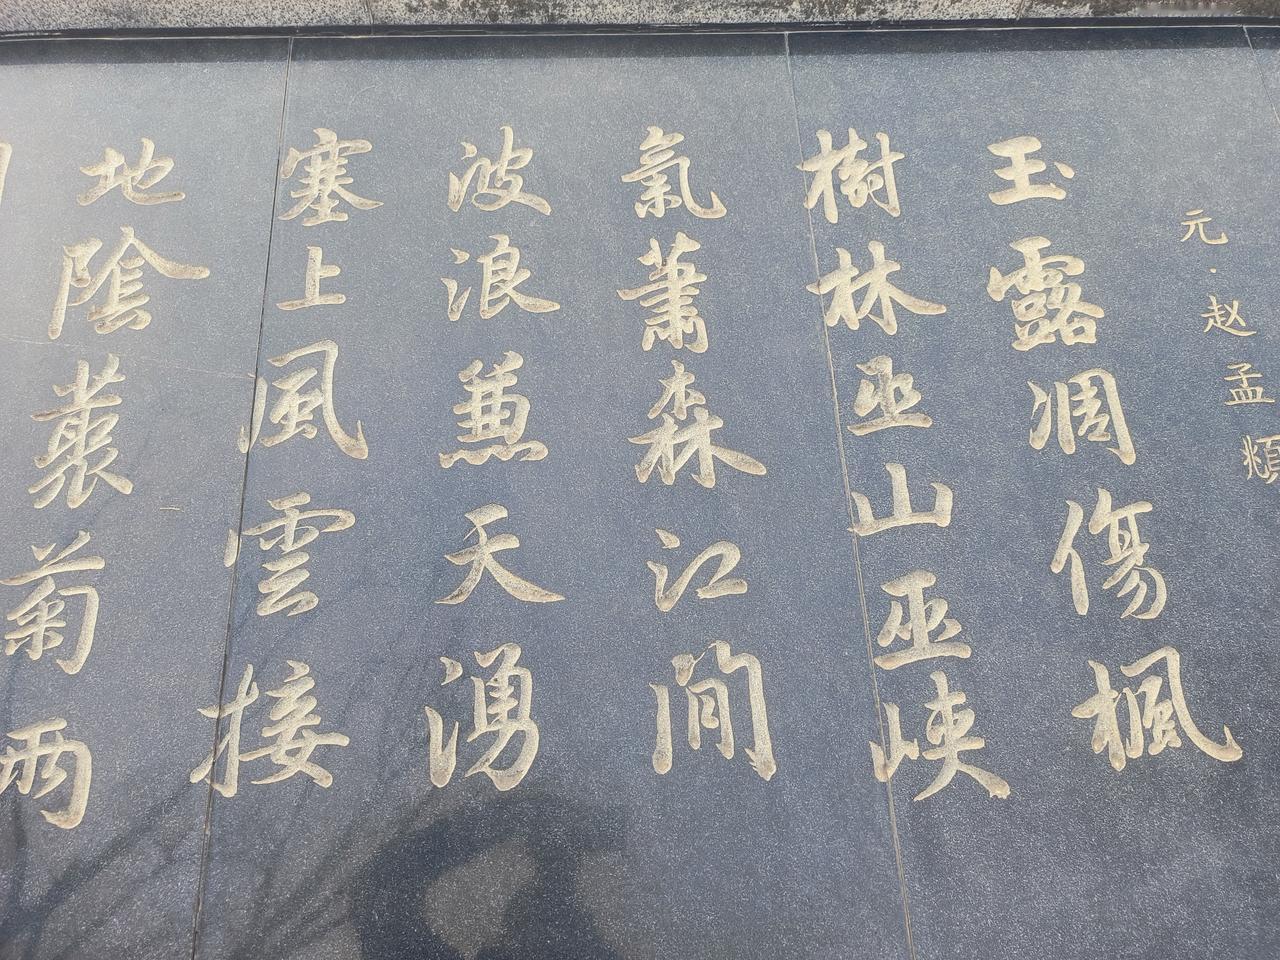 元·赵孟頫
玉露凋傷楓
樹林巫山巫峽
氣蕭森江間
波浪兼天湧
塞上風雲接
地陰叢菊兩